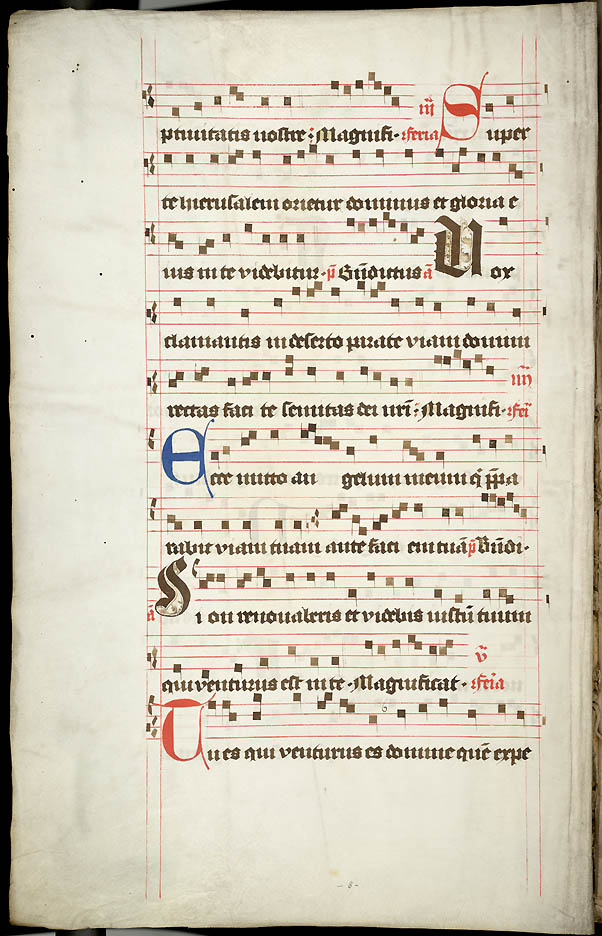 ptiuitatis nostre : Magnifi · feria iij Super
te hierusalem orietur dominus et gloria e
ius in te videbitur · p̄ Bn̄dictus ā Vox
clamantis in deserto parate viam domini
rectas faci te semitas dei nr̄i : Magnifi · fer̄ iiij
Ecce mitto an gelum meum q̄ p̄pa
rabit viam tuam ante faci em tuā p̄ Bn̄di ·
ā Si on renoualeris et videbis iustū tuum
qui venturus est in te · Magnificat · feria v̄
Tu es qui venturus es domine quē expe
- 8 -